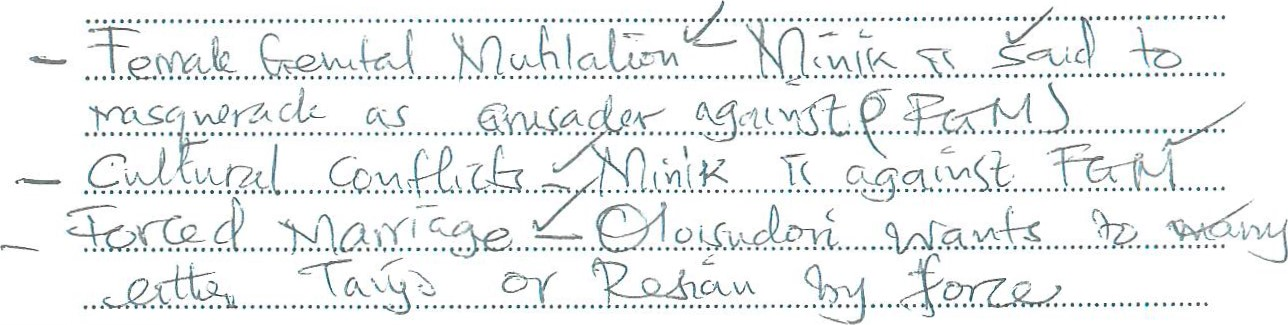 - Female Genital Mutilation - Minik is said to
masquerade as crusader against (FGM)
- Cultural Conflicts - Minik is against FGM
- Forced Marriage - Oloisudori wants to marry
either Taiyo or Resian by force